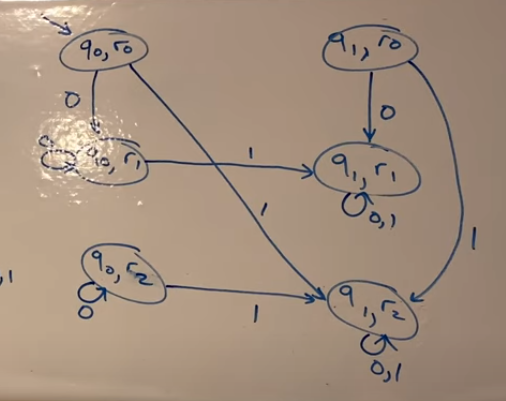 q0,r0
q1,r0
0
0
q0,r1
1
q1,r1
0,1
1
1
q0,r2
,1
0
1
q1,r2
0,1